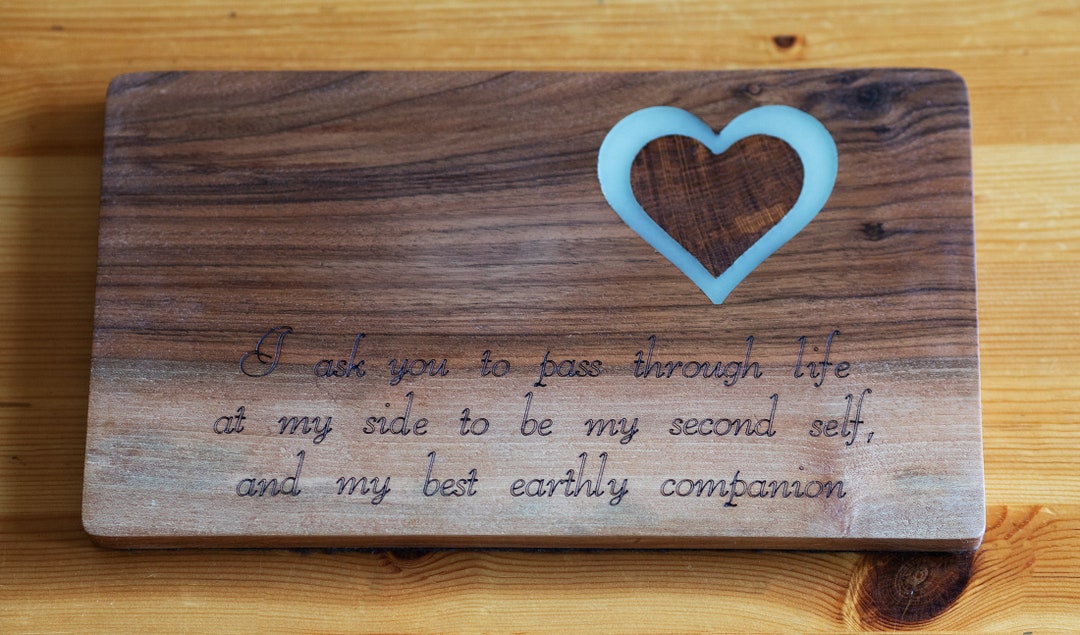 I ask you to pass through life
at my side to be my second self,
and my best earthly companion